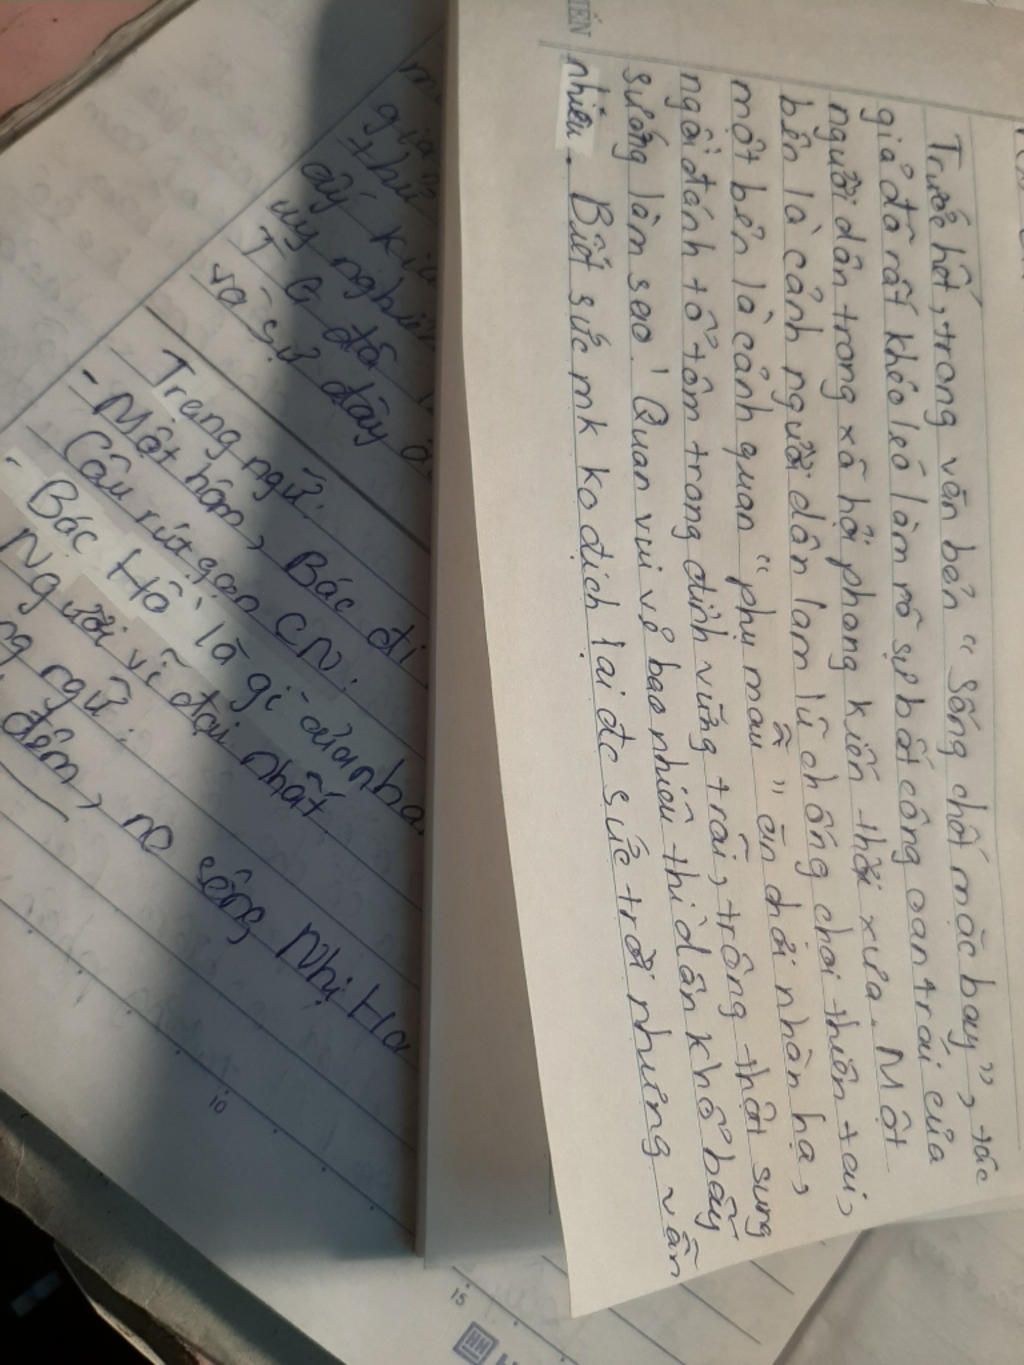 Trước hết, trong văn bản " sống chết mặc bay", tác
giả đã rất khéo léo làm rõ sự bất công oan trái của
người dân trong xã hội phong kiến thời xưa. Một
bên là cảnh người dân lam lũ chống chọi thiên tai,
một bên là cảnh quan " phụ mẫu " ăn chơi nhàn hạ,
ngồi đánh tổ tôm trong đình vững trãi, trông thật sung
sướng làm sao! Quan vui vẻ bao nhiêu thì dân khổ bấy
nhiêu. Biết sức mk ko địch lại đc sức trời nhưng vẫn
giả
thủ
ấy
uy nghiêm
T G đã
và sự đầy
Trạng ngữ.
- Một hôm, Bác đi
Câu rút gọn CN.
- Bác Hồ là gì của nhà
Người vĩ đại nhất
ng ngữ.
đêm, nc sông Nhị Hà
10
15